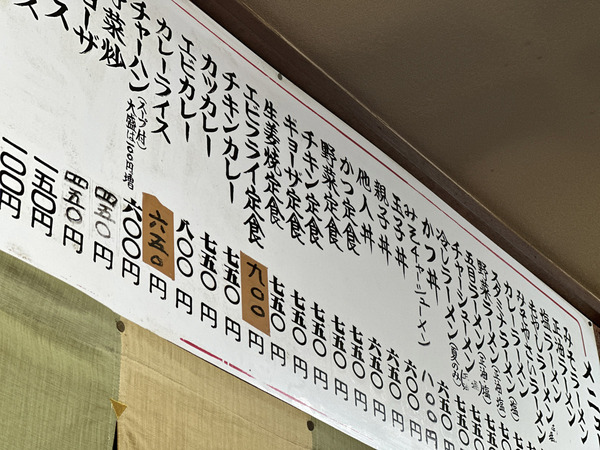 メニュ
みそラーメン
正油ラーメン
塩ラーメン
もやしラーメン
カレーラーメン
スタミナラーメン
野菜ラーメン(正油 塩)
五目ラーメン(正油 塩)
チャーシューメン
冷しラーメン(夏のみ) 七五〇
かつ丼 六五〇
みそチャーシューメン 八〇〇
玉子丼 六〇〇円
親子丼 六五〇円
他人丼 六五〇円
かつ定食 七五〇円
野菜定食 七五〇円
チキン定食 七五〇円
ギョーザ定食 七五〇円
生姜焼定食 七五〇円
エビフライ定食 九〇〇円
チキンカレー 七五〇円
カツカレー 七五〇円
エビカレー 八〇〇円
カレーライス 六五〇円
チャーハン(スープ付) 大盛は100円増 六〇〇円
野菜炒 四五〇円
ョーザ 四五〇円
ス 一五〇円
ス 一〇〇円